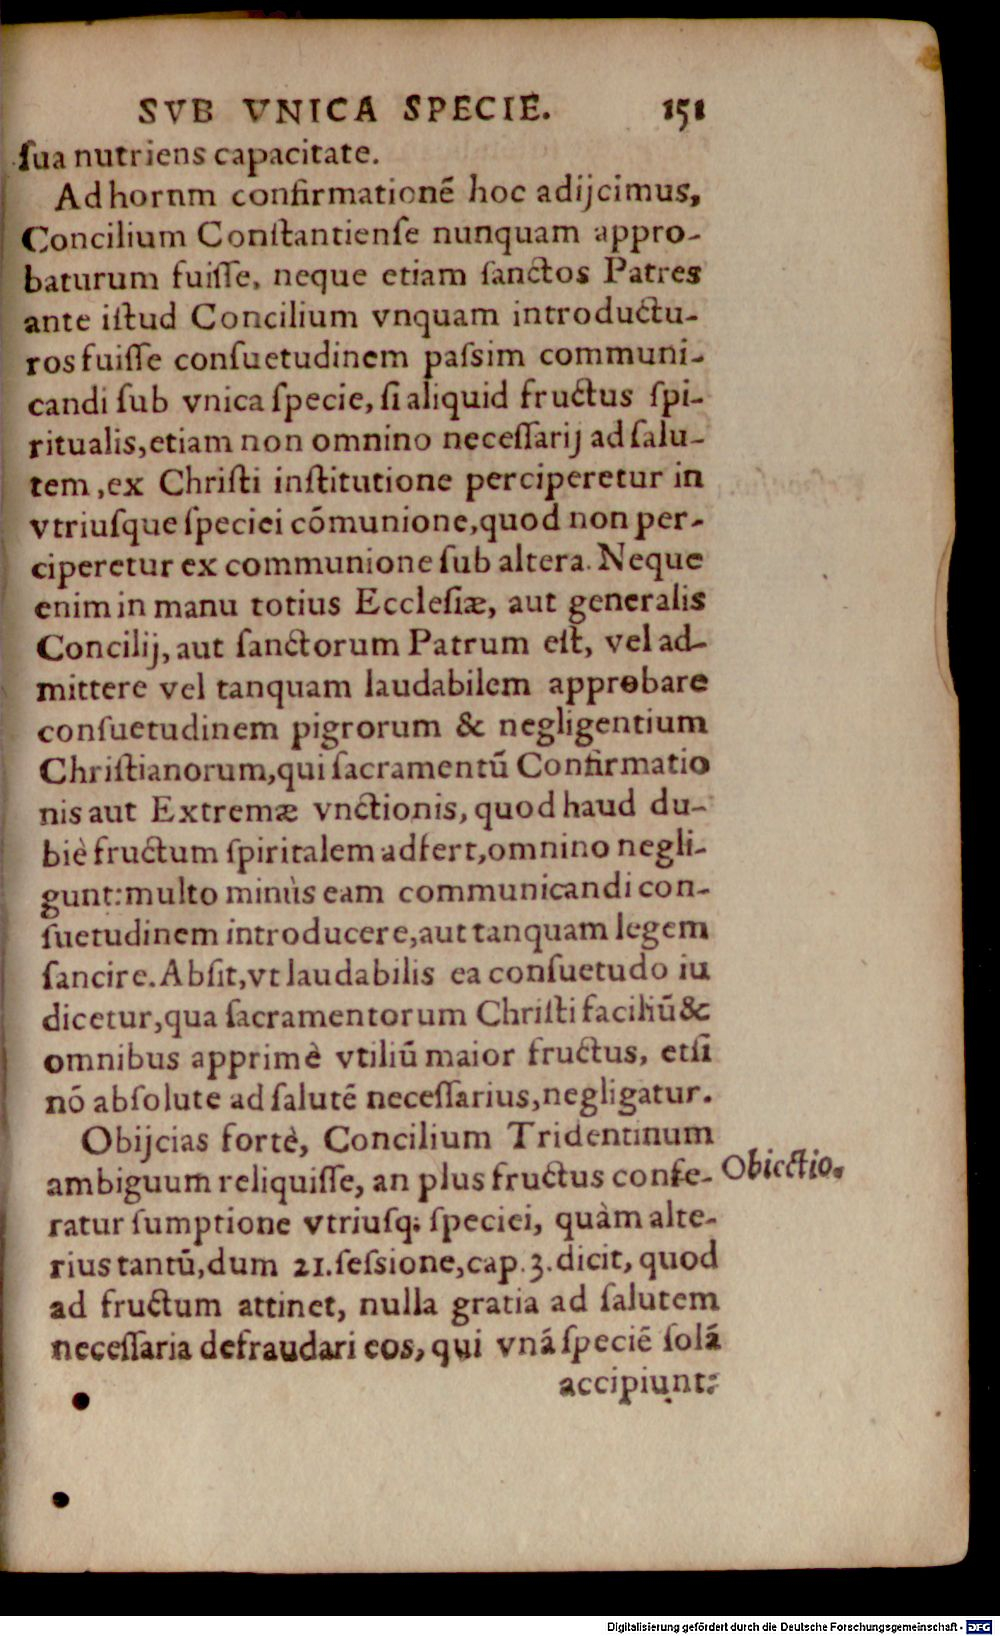 SVB VNICA SPECIE. 151
ſua nutriens capacitate.
Ad hornm confirmationē hoc adijcimus,
Concilium Conſtantienſe nunquam appro-
baturum fuiſſe, neque etiam ſanctos Patres
ante iſtud Concilium vnquam introductu-
ros fuiſſe conſuetudinem paſsim communi-
candi ſub vnica ſpecie, ſi aliquid fructus ſpi-
ritualis, etiam non omnino neceſſarij ad ſalu-
tem, ex Chriſti inſtitutione perciperetur in
vtriuſque ſpeciei cōmunione, quod non per-
ciperetur ex communione ſub altera. Neque
enim in manu totius Eccleſiæ, aut generalis
Concilij, aut ſanctorum Patrum eſt, vel ad-
mittere vel tanquam laudabilem approbare
conſuetudinem pigrorum & negligentium
Chriſtianorum, qui ſacramentū Confirmatio
nis aut Extremæ vnctionis, quod haud du-
biè fructum ſpiritalem adfert, omnino negli-
gunt: multo minùs eam communicandi con-
ſuetudinem introducere, aut tanquam legem
ſancire. Abſit, vt laudabilis ea conſuetudo iu
dicetur, qua ſacramentorum Chriſti faciliū &
omnibus apprimè vtiliū maior fructus, etſi
nō abſolute ad ſalutē neceſſarius, negligatur.
Obijcias fortè, Concilium Tridentinum
ambiguum reliquiſſe, an plus fructus confe- Obiectio.
ratur ſumptione vtriuſq; ſpeciei, quàm alte-
rius tantū, dum 21. ſeſsione, cap. 3. dicit, quod
ad fructum attinet, nulla gratia ad ſalutem
neceſſaria defraudari eos, qui vnā ſpeciē ſolā
accipiunt:
Digitalisierung gefördert durch die Deutsche Forschungsgemeinschaft - DFG